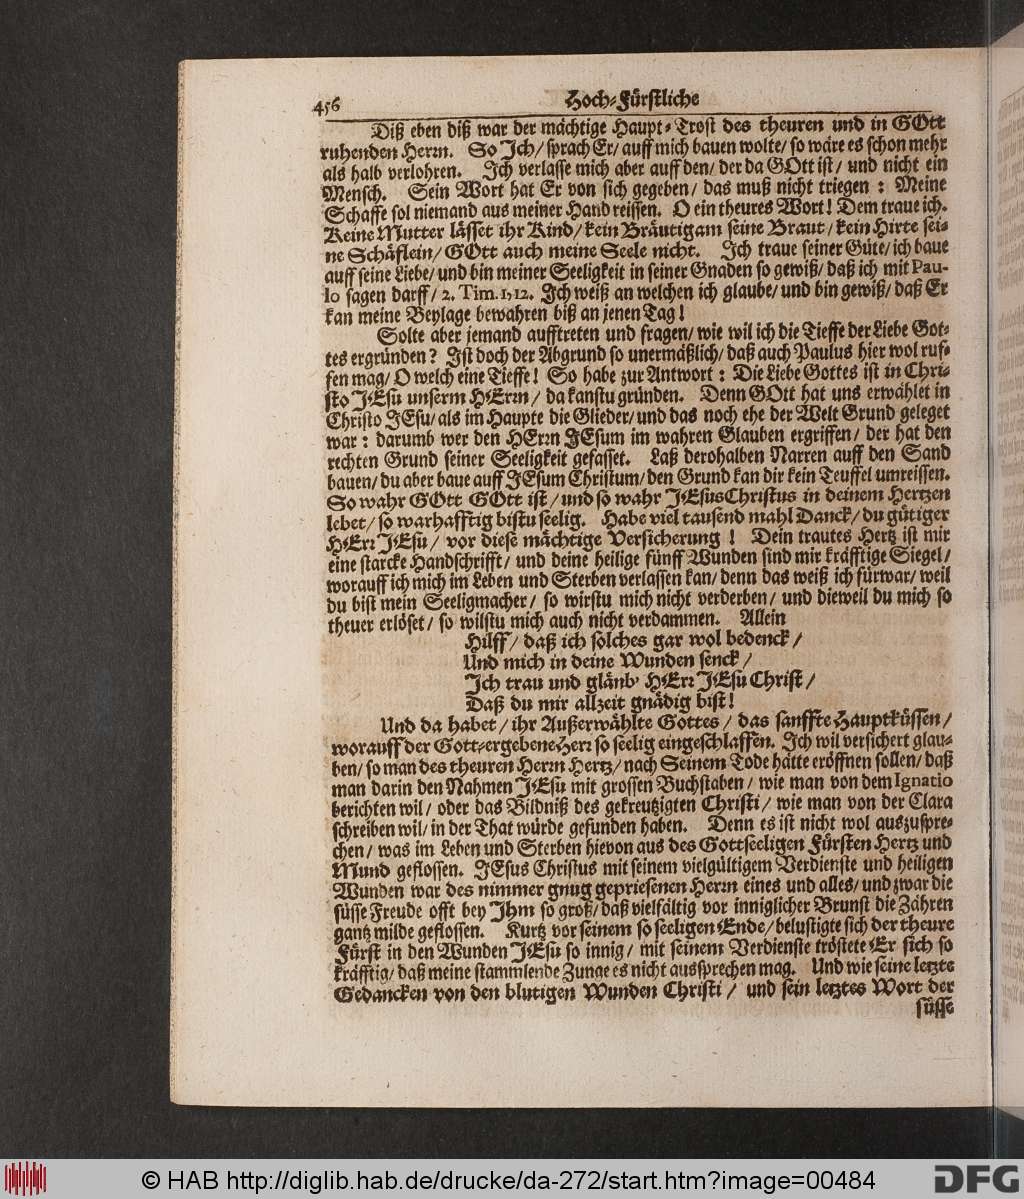 456 Hoch-Fürstliche
Diß eben diß war der mächtige Haupt-Trost des theuren und in GOtt
ruhenden Herrn. So Ich/ sprach Er/ auff mich bauen wolte/ so wäre es schon mehr
als halb verlohren. Ich verlasse mich aber auff den/ der da GOtt ist/ und nicht ein
Mensch. Sein Wort hat Er von sich gegeben/ das muß nicht triegen: Meine
Schaffe sol niemand aus meiner Hand reissen. O ein theures Wort! Dem traue ich.
Keine Mutter lässet ihr Kind/ kein Bräutigam seine Braut/ kein Hirte sei-
ne Schäflein/ GOtt auch meine Seele nicht. Ich traue seiner Güte/ ich baue
auff seine Liebe/ und bin meiner Seeligkeit in seiner Gnaden so gewiß/ daß ich mit Pau-
lo sagen darff/ 2. Tim. 1, 12. Ich weiß an welchen ich glaube/ und bin gewiß/ daß Er
kan meine Beylage bewahren biß an jenen Tag!
Solte aber jemand aufftreten und fragen/ wie wil ich die Tieffe der Liebe Got-
tes ergründen? Ist doch der Abgrund so unermäßlich/ daß auch Paulus hier wol ruf-
fen mag/ O welch eine Tieffe! So habe zur Antwort: Die Liebe Gottes ist in Chri-
sto JEsu unserm HErrn/ da kanstu gründen. Denn GOtt hat uns erwählet in
Christo JEsu/ als im Haupte die Glieder/ und das noch ehe der Welt Grund geleget
war: darumb wer den HErrn JEsum im wahren Glauben ergriffen/ der hat den
rechten Grund seiner Seeligkeit gefasset. Laß derohalben Narren auff den Sand
bauen/ du aber baue auff JEsum Christum/ den Grund kan dir kein Teuffel umreissen.
So wahr GOtt GOtt ist/ und so wahr JEsus Christus in deinem Hertzen
lebet/ so warhafftig bistu seelig. Habe viel tausend mahl Danck/ du gütiger
HErr JEsu/ vor diese mächtige Versicherung! Dein trautes Hertz ist mir
eine starcke Handschrifft/ und deine heilige fünff Wunden sind mir kräfftige Siegel/
worauff ich mich im Leben und Sterben verlassen kan/ denn das weiß ich fürwar/ weil
du bist mein Seeligmacher/ so wirstu mich nicht verderben/ und dieweil du mich so
theuer erlöset/ so wilstu mich auch nicht verdammen. Allein
Hilff/ daß ich solches gar wol bedenck/
Und mich in deine Wunden senck/
Ich trau und gläub' HErr JEsu Christ/
Daß du mir allzeit gnädig bist!
Und da habet/ ihr Außerwählte Gottes/ das sanffte Hauptküssen/
worauff der Gott-ergebene Herr so seelig eingeschlaffen. Ich wil versichert glau-
ben/ so man des theuren Herrn Hertz/ nach Seinem Tode hätte eröffnen sollen/ daß
man darin den Nahmen JEsu mit grossen Buchstaben/ wie man von dem Ignatio
berichten wil/ oder das Bildniß des gekreutzigten Christi/ wie man von der Clara
schreiben wil/ in der That würde gefunden haben. Denn es ist nicht wol auszuspre-
chen/ was im Leben und Sterben hievon aus des Gottseeligen Fürsten Hertz und
Mund geflossen. JEsus Christus mit seinem vielgültigem Verdienste und heiligen
Wunden war des nimmer gnug gepriesenen Herrn eines und alles/ und zwar die
süsse Freude offt bey Ihm so groß/ daß vielfältig vor inniglicher Brunst die Zähren
gantz milde geflossen. Kurtz vor seinem so seeligen Ende/ belustigte sich der theure
Fürst in den Wunden JEsu so innig/ mit seinem Verdienste tröstete Er sich so
kräfftig/ daß meine stammlende Zunge es nicht aussprechen mag. Und wie seine letzte
Gedancken von den blutigen Wunden Christi/ und sein letztes Wort der
süsse
© HAB http://diglib.hab.de/drucke/da-272/start.htm?image=00484
DFG